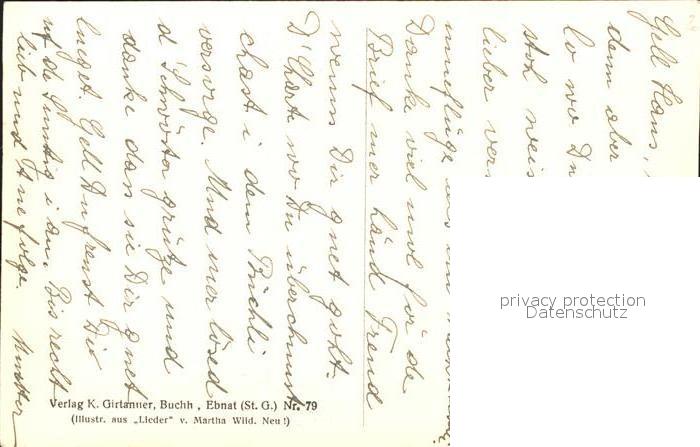 Gell Hans,
denn aber
lo wo Du
stoh weis
lieber ver
umeflüge
Danke viel mol för de
Brief mer händ Freud
wenns Dir guet goht.
D'Charte wo Du überchunst
chast i dem Büchli
versorge. Und mer lösed
d'Schwöster grüeze und
danke dass sie Dir guet
lueget. Gell Du freust Di
uf de Sunntig i au. Bis recht
lieb und tue folge. Mutter
Verlag K. Girtanner, Buchh., Ebnat (St. G.) Nr. 79
(Illustr. aus „Lieder" v. Martha Wild. Neu!)
privacy protection
Datenschutz